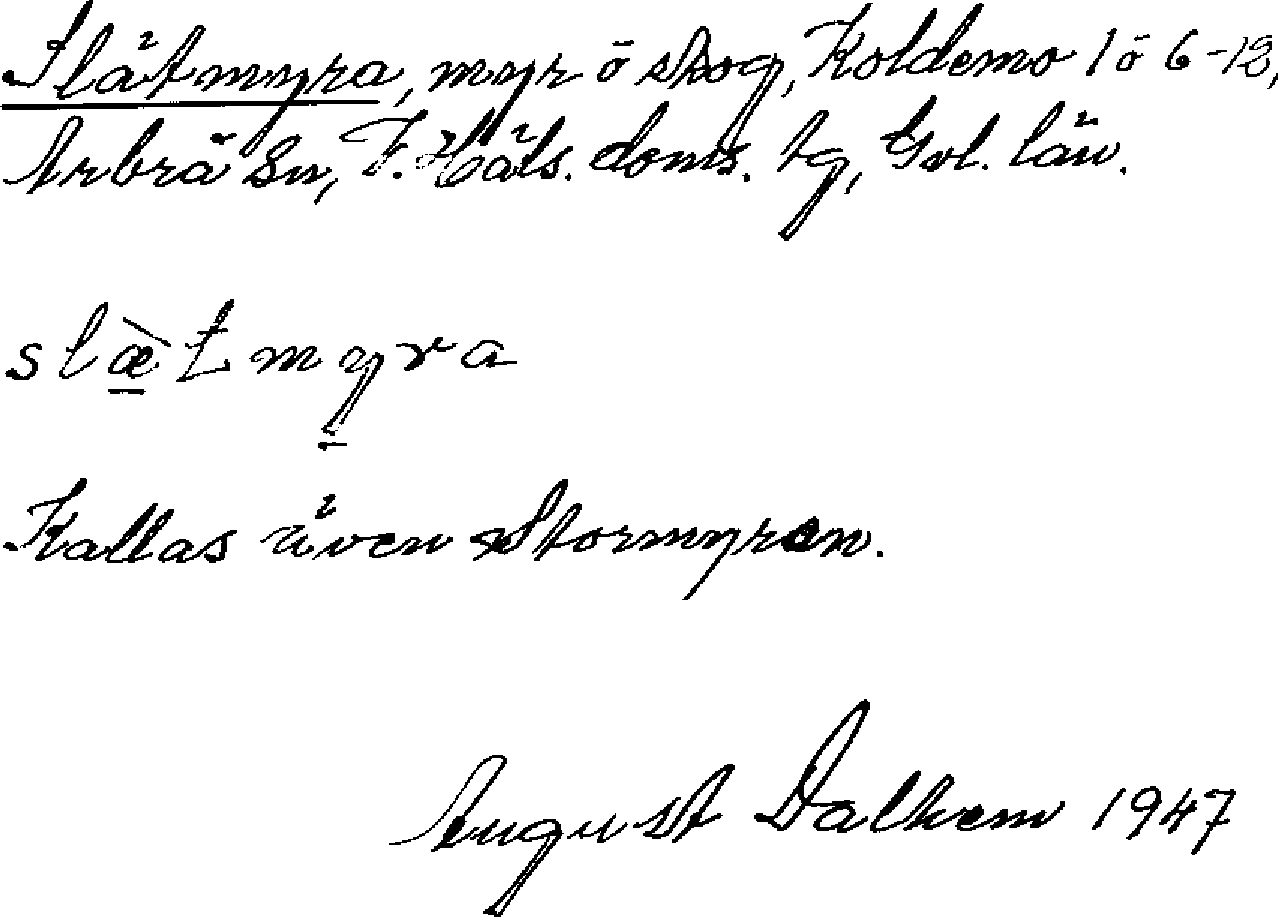 Slåtmyra, myr ö skog, Koldemo 1 ö 6-12,
Arbrå Sn, V. Häls. doms. tg, Gvl. län.
slæ̀tmyra
Kallas även Stormyren.
August Dalhem 1947